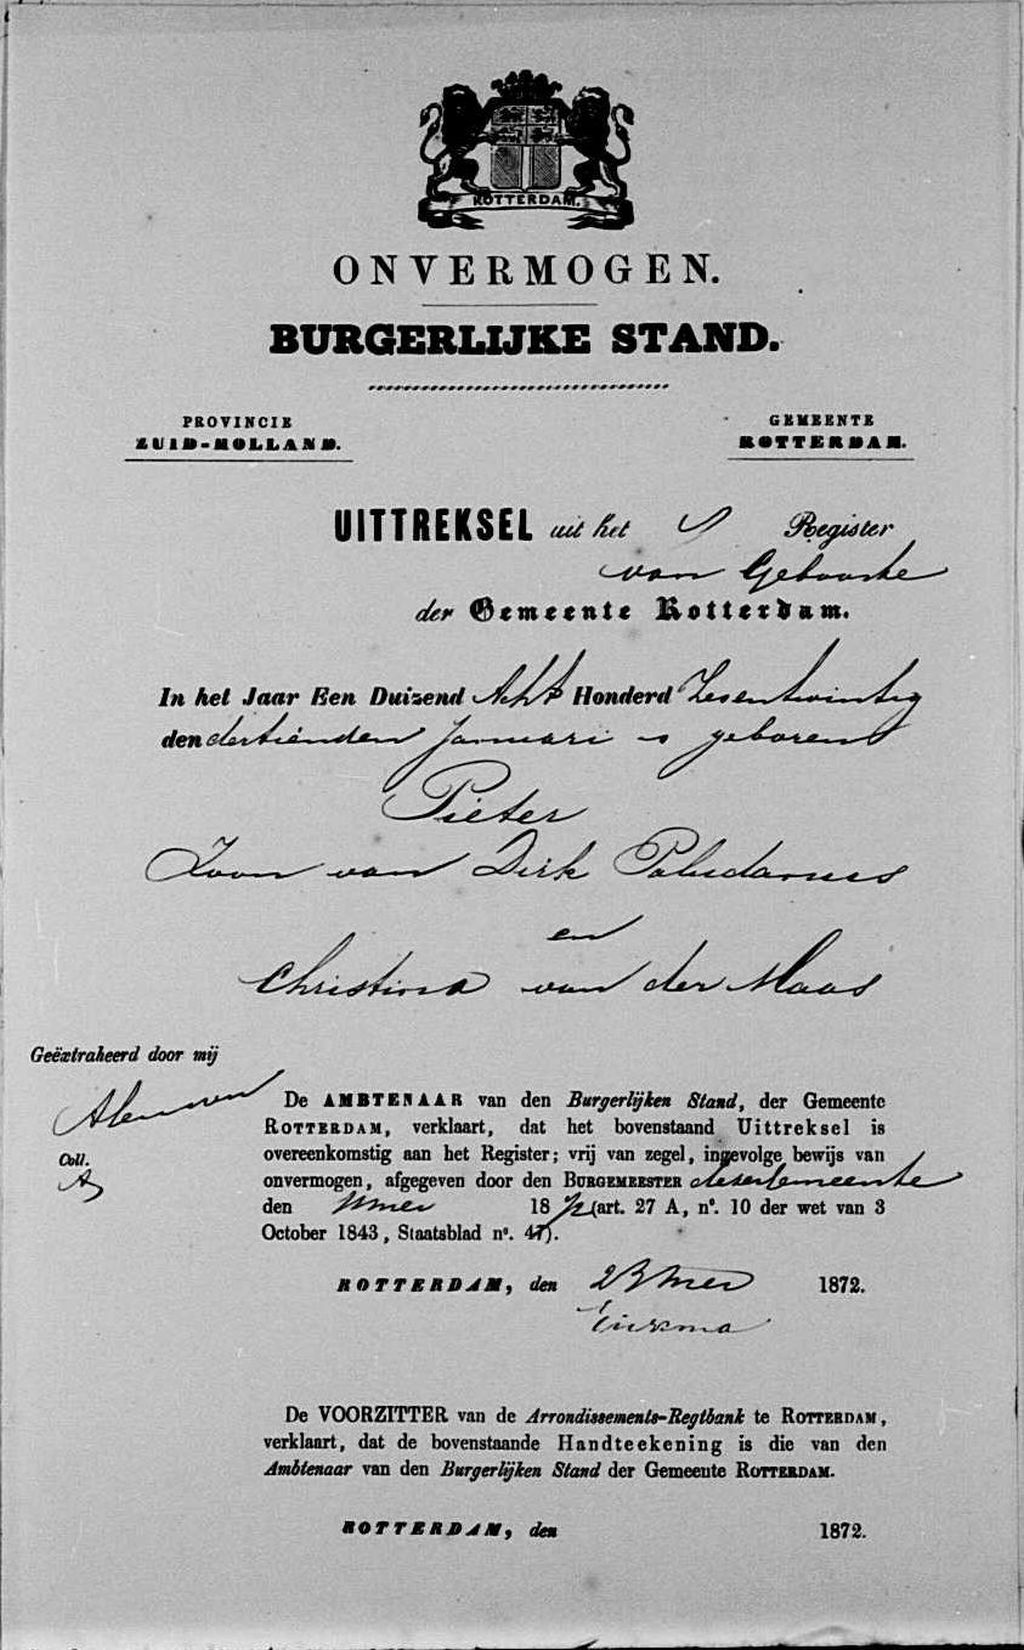 ROTTERDAM.
ONVERMOGEN.
BURGERLIJKE STAND.
PROVINCIE
ZUID-HOLLAND.
GEMEENTE
ROTTERDAM.
UITTREKSEL uit het Register
van Geboorte
der Gemeente Rotterdam.
In het Jaar Een Duizend Acht Honderd Zesentwintig
den dertienden Januari is geboren
Pieter
Zoon van Dirk Paludanus
en
Christina van der Maas
Geëxtraheerd door mij
Coll.
De AMBTENAAR van den Burgerlijken Stand, der Gemeente
ROTTERDAM, verklaart, dat het bovenstaand Uittreksel is
overeenkomstig aan het Register; vrij van zegel, ingevolge bewijs van
onvermogen, afgegeven door den BURGEMEESTER dezer Gemeente
den mei 1872 (art. 27 A, n°. 10 der wet van 3
October 1843, Staatsblad n°. 47).
ROTTERDAM, den 23 Mei 1872.
De VOORZITTER van de Arrondissements-Regtbank te ROTTERDAM,
verklaart, dat de bovenstaande Handteekening is die van den
Ambtenaar van den Burgerlijken Stand der Gemeente ROTTERDAM.
ROTTERDAM, den 1872.